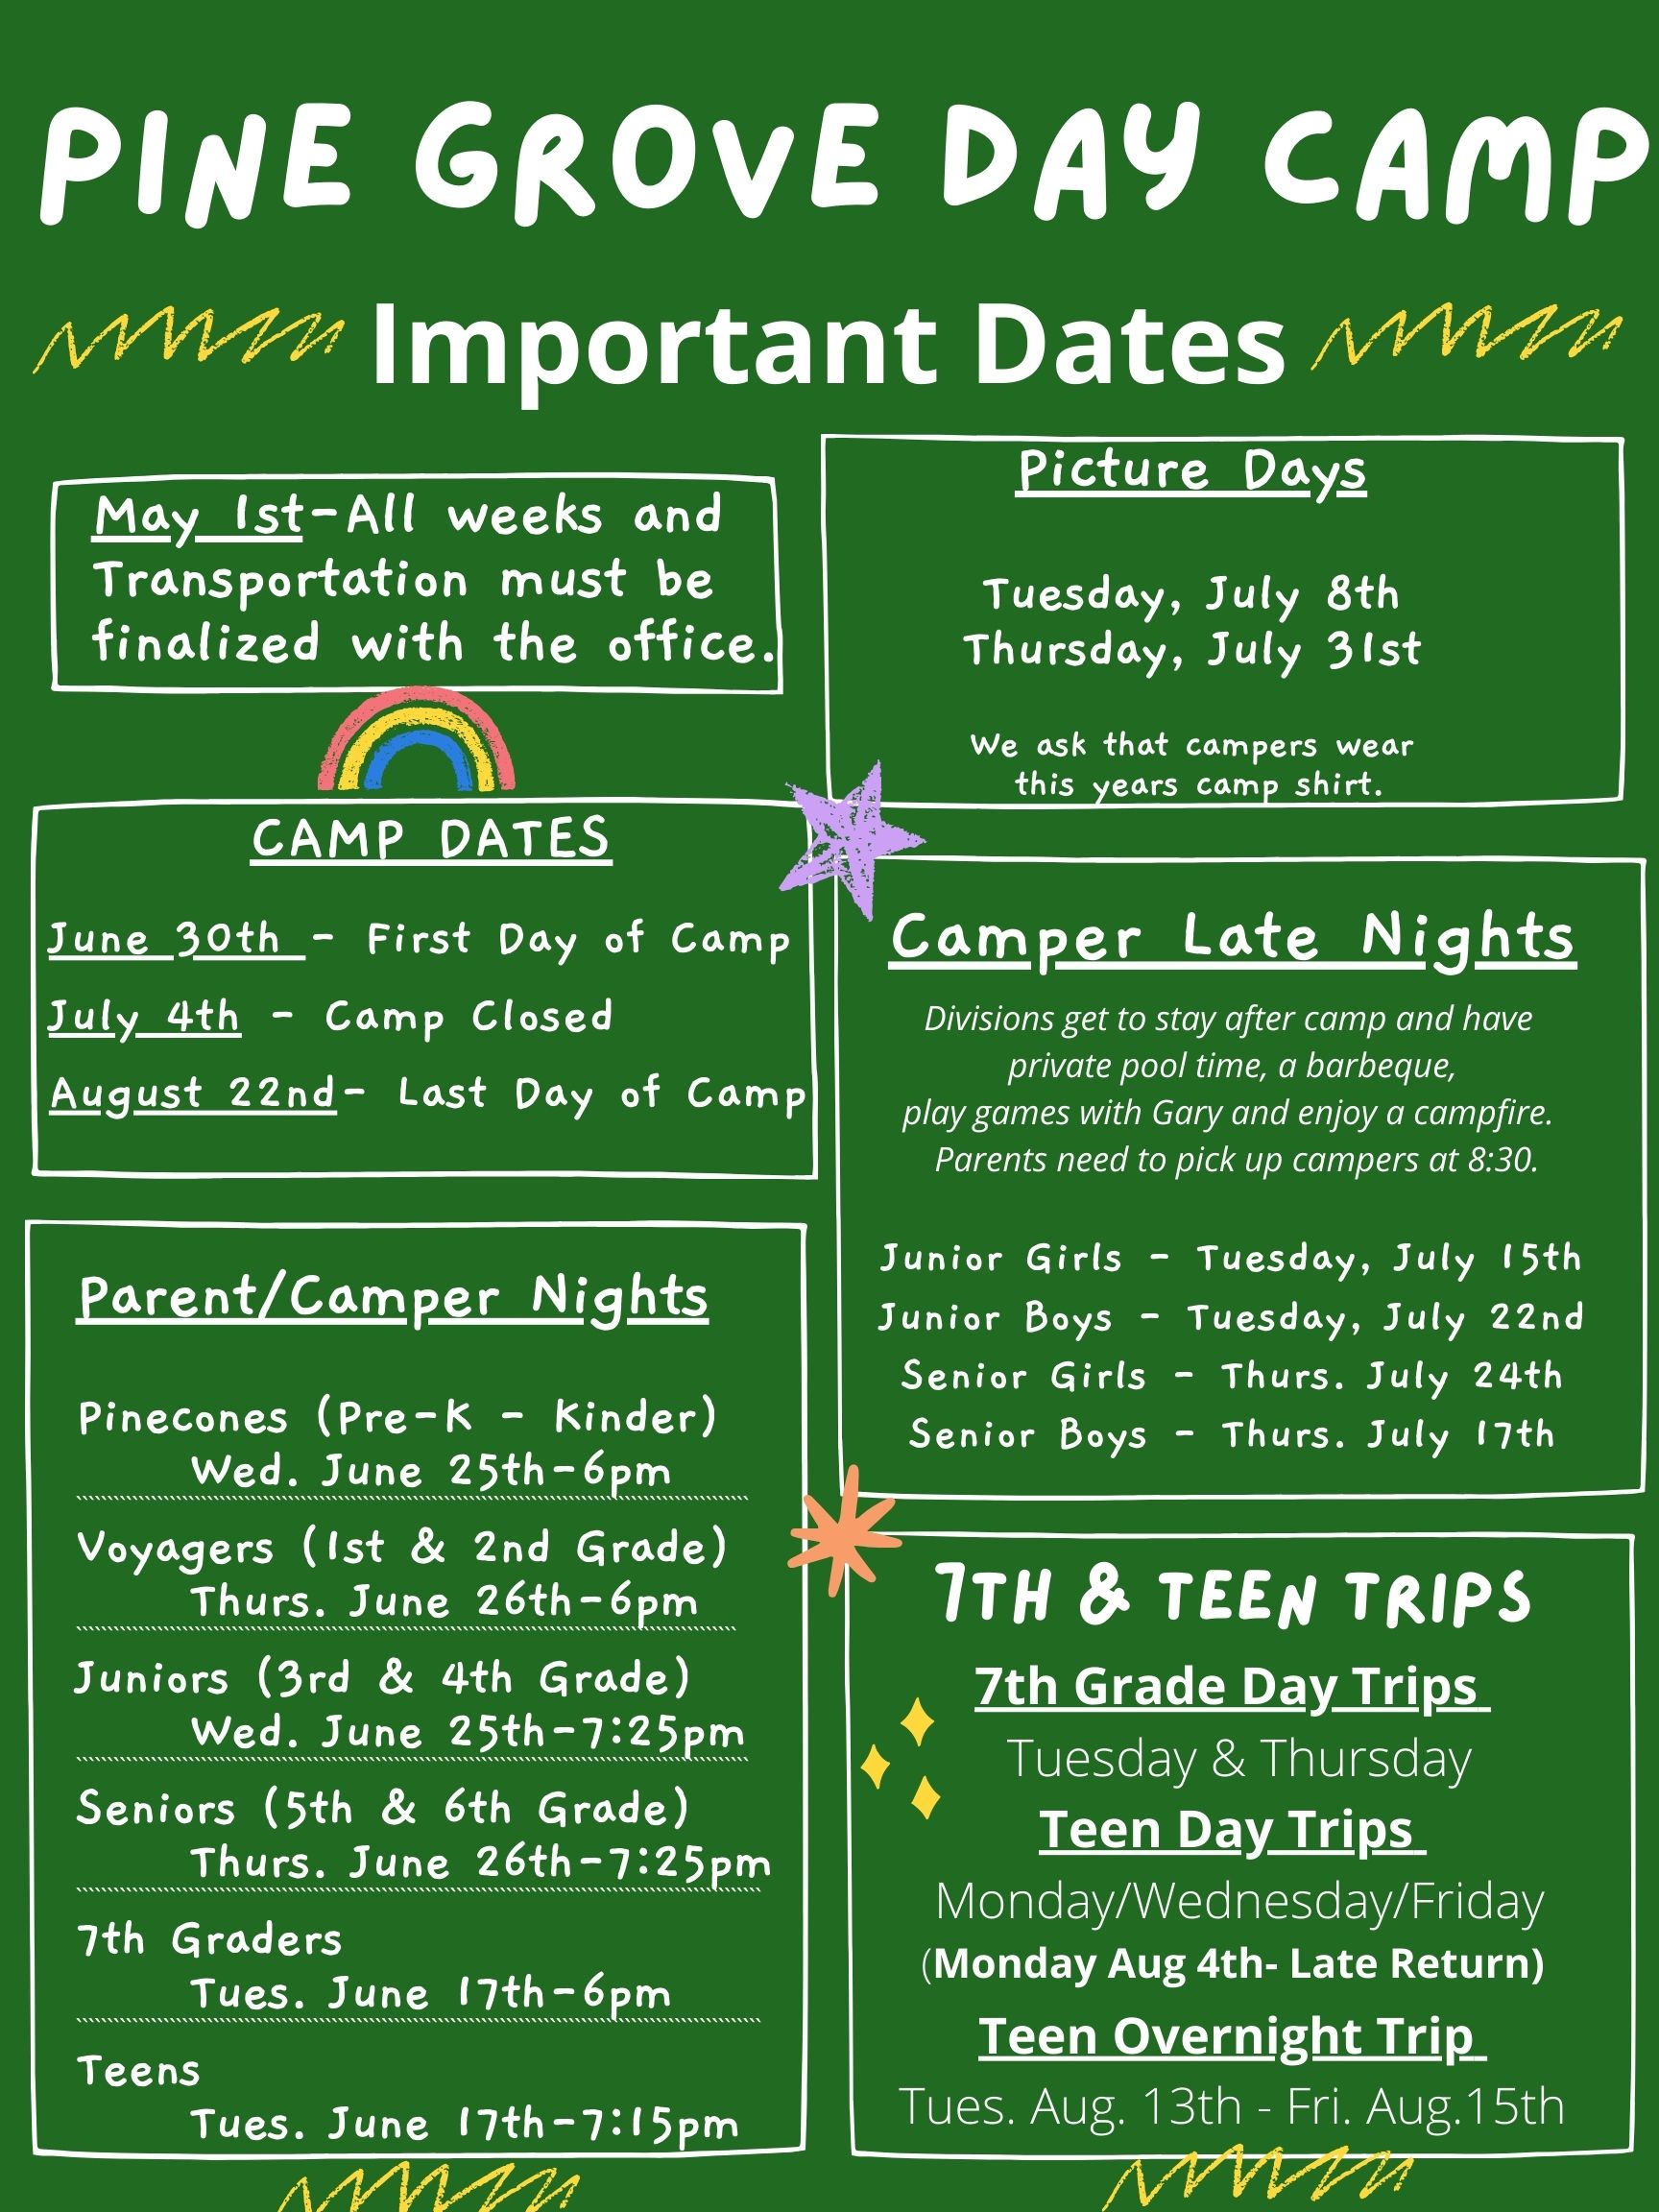 PINE GROVE DAY CAMP
Important Dates
May 1st-All weeks and
Transportation must be
finalized with the office.
Picture Days
Tuesday, July 8th
Thursday, July 31st
We ask that campers wear
this years camp shirt.
CAMP DATES
June 30th - First Day of Camp
July 4th - Camp Closed
August 22nd- Last Day of Camp
Camper Late Nights
Divisions get to stay after camp and have
private pool time, a barbeque,
play games with Gary and enjoy a campfire.
Parents need to pick up campers at 8:30.
Junior Girls - Tuesday, July 15th
Junior Boys - Tuesday, July 22nd
Senior Girls - Thurs. July 24th
Senior Boys - Thurs. July 17th
Parent/Camper Nights
Pinecones (Pre-K - Kinder)
Wed. June 25th-6pm
Voyagers (1st & 2nd Grade)
Thurs. June 26th-6pm
Juniors (3rd & 4th Grade)
Wed. June 25th-7:25pm
Seniors (5th & 6th Grade)
Thurs. June 26th-7:25pm
7th Graders
Tues. June 17th-6pm
Teens
Tues. June 17th-7:15pm
7TH & TEEN TRIPS
7th Grade Day Trips
Tuesday & Thursday
Teen Day Trips
Monday/Wednesday/Friday
(Monday Aug 4th- Late Return)
Teen Overnight Trip
Tues. Aug. 13th - Fri. Aug.15th